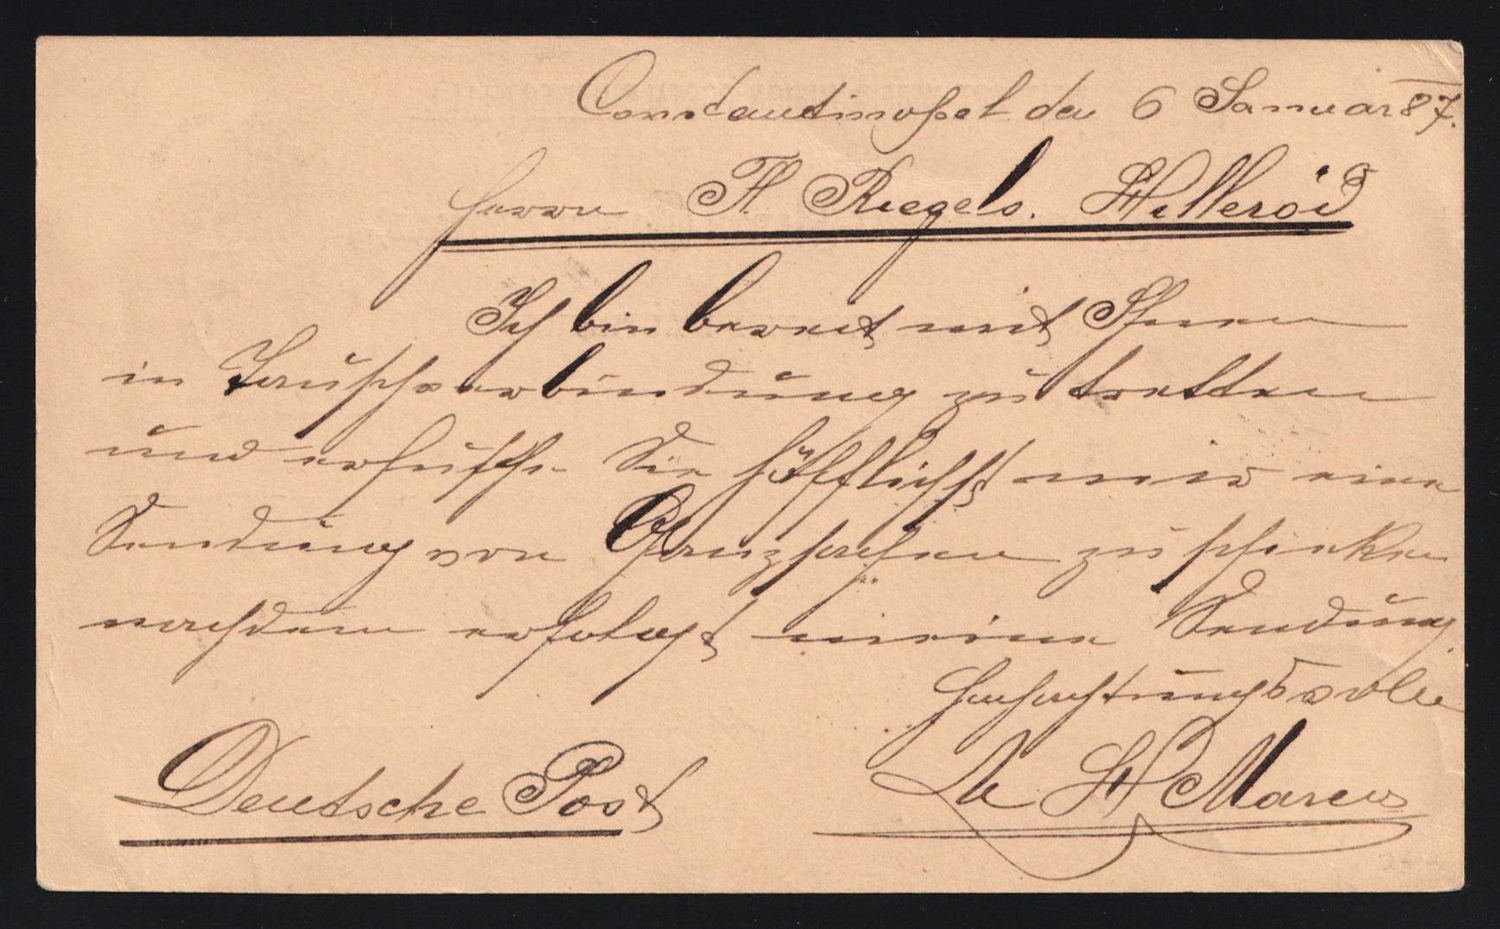 Constantinopel den 6 Januar 87.
Herrn H. Riegels. Hilleröd
Ich bin bereit mit Ihnen
in Tauschverbindung zu tretten
und ersuche Sie höfflichst mir eine
Sendung von Ganzsachen zu schicken
nachdem erfolgt meine Sendung
Hochachtungsvoll
H Marcus
Deutsche Post